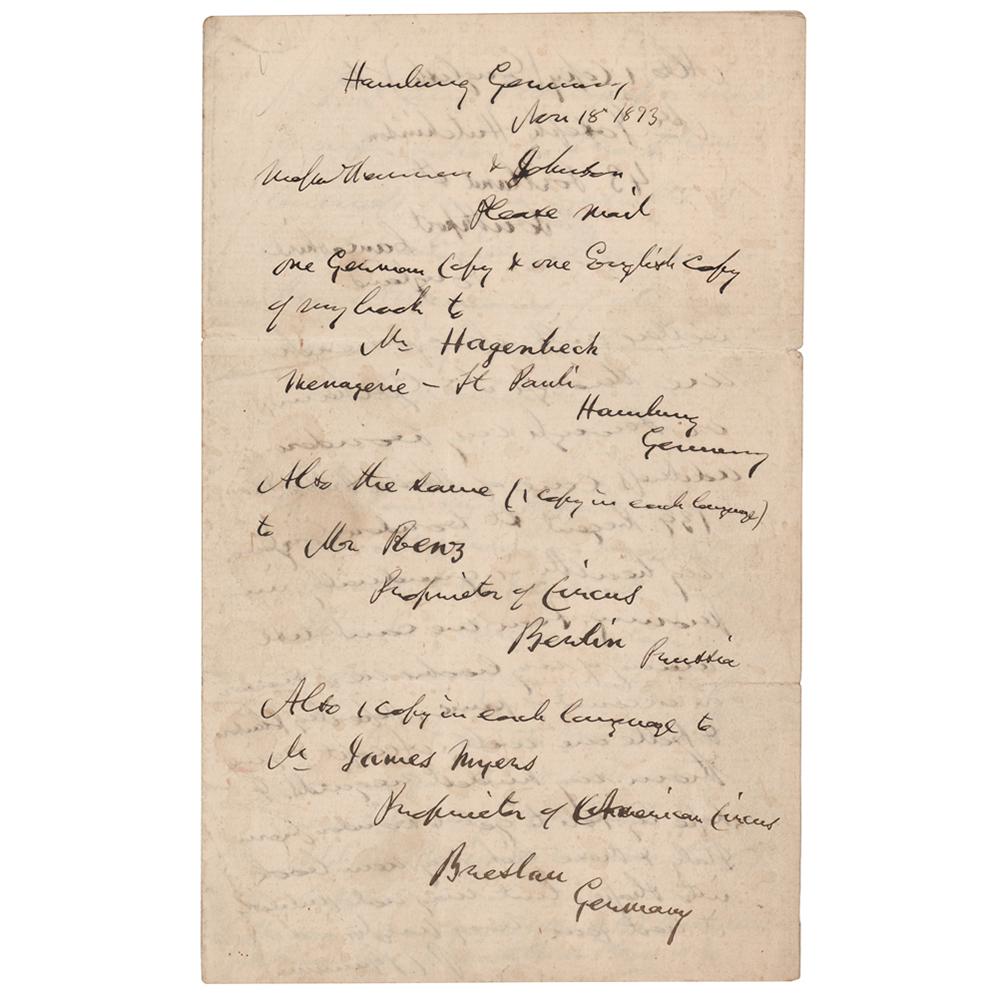 Hamburg Germany
Nov 18 1873
& Johnson
Please mail
one German Copy & one English copy
of my book to
Mr Hagenbeck
Menagerie – St Pauli
Hamburg
Germany
Also the same (1 copy in each language)
to Mr Renz
Proprietor of Circus
Berlin Prussia
Also 1 copy in each language to
Mr James Myers
Proprietor of American Circus
Breslau
Germany